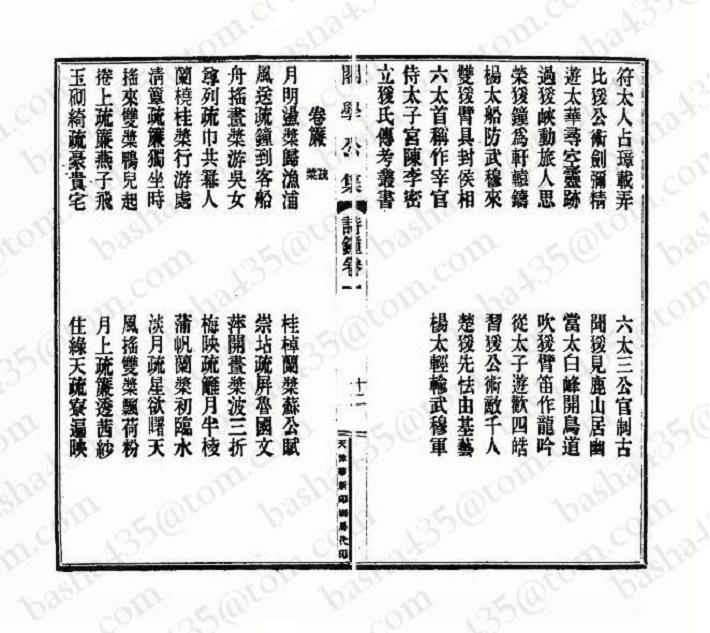 符太人占璋載弄
六太三公官制古
比猨公術劍彌精
聞猨見鹿山居幽
遊太華尋空靈跡
當太白峰開鳥道
過猨峽動旅人思
吹猨臂笛作龍吟
榮猨鐘爲軒轅鑄
從太子遊歡四皓
楊太船防武穆來
習猨公術敵千人
雙猨臂具封侯相
楚猨先怯由基藝
六太首稱作宰官
楊太輕輪武穆軍
侍太子宮陳李密
立猨氏傳考叢書
閣學公集
詩鐘卷一
十二
天津華新印刷局代印
卷簾
疏
槳
月明盪槳歸漁浦
桂棹蘭槳蘇公賦
風送疏鐘到客船
崇坫疏屏魯國文
舟搖畫槳游吳女
萍開畫槳波三折
尊列疏巾共冪人
梅映疏籬月半棱
蘭橈桂槳行游處
蒲帆蘭槳初臨水
清簟疏簾獨坐時
淡月疏星欲曙天
搖來雙槳鴨兒起
風搖雙槳飄荷粉
捲上疏簾燕子飛
月上疏簾透茜紗
玉砌綺疏豪貴宅
住綠天疏寮逼映
basha435@tom.com